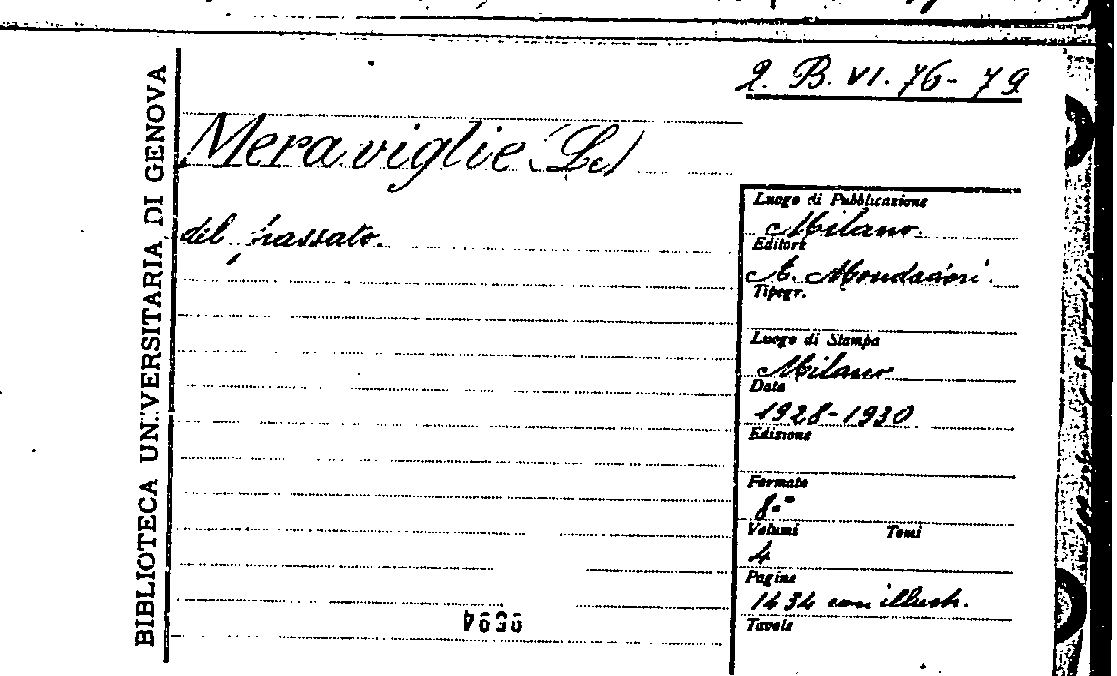 2. B. VI. 76-79
BIBLIOTECA UN.VERSITARIA DI GENOVA
Meraviglie (Le)
del passato.
Luogo di Pubblicazione
Milano.
Editore
A. Mondadori.
Tipogr.
Luogo di Stampa
Milano
Data
1928-1930
Edizione
Formato
8.°
Volumi Tomi
4
Pagine
1434 con illustr.
Tavole